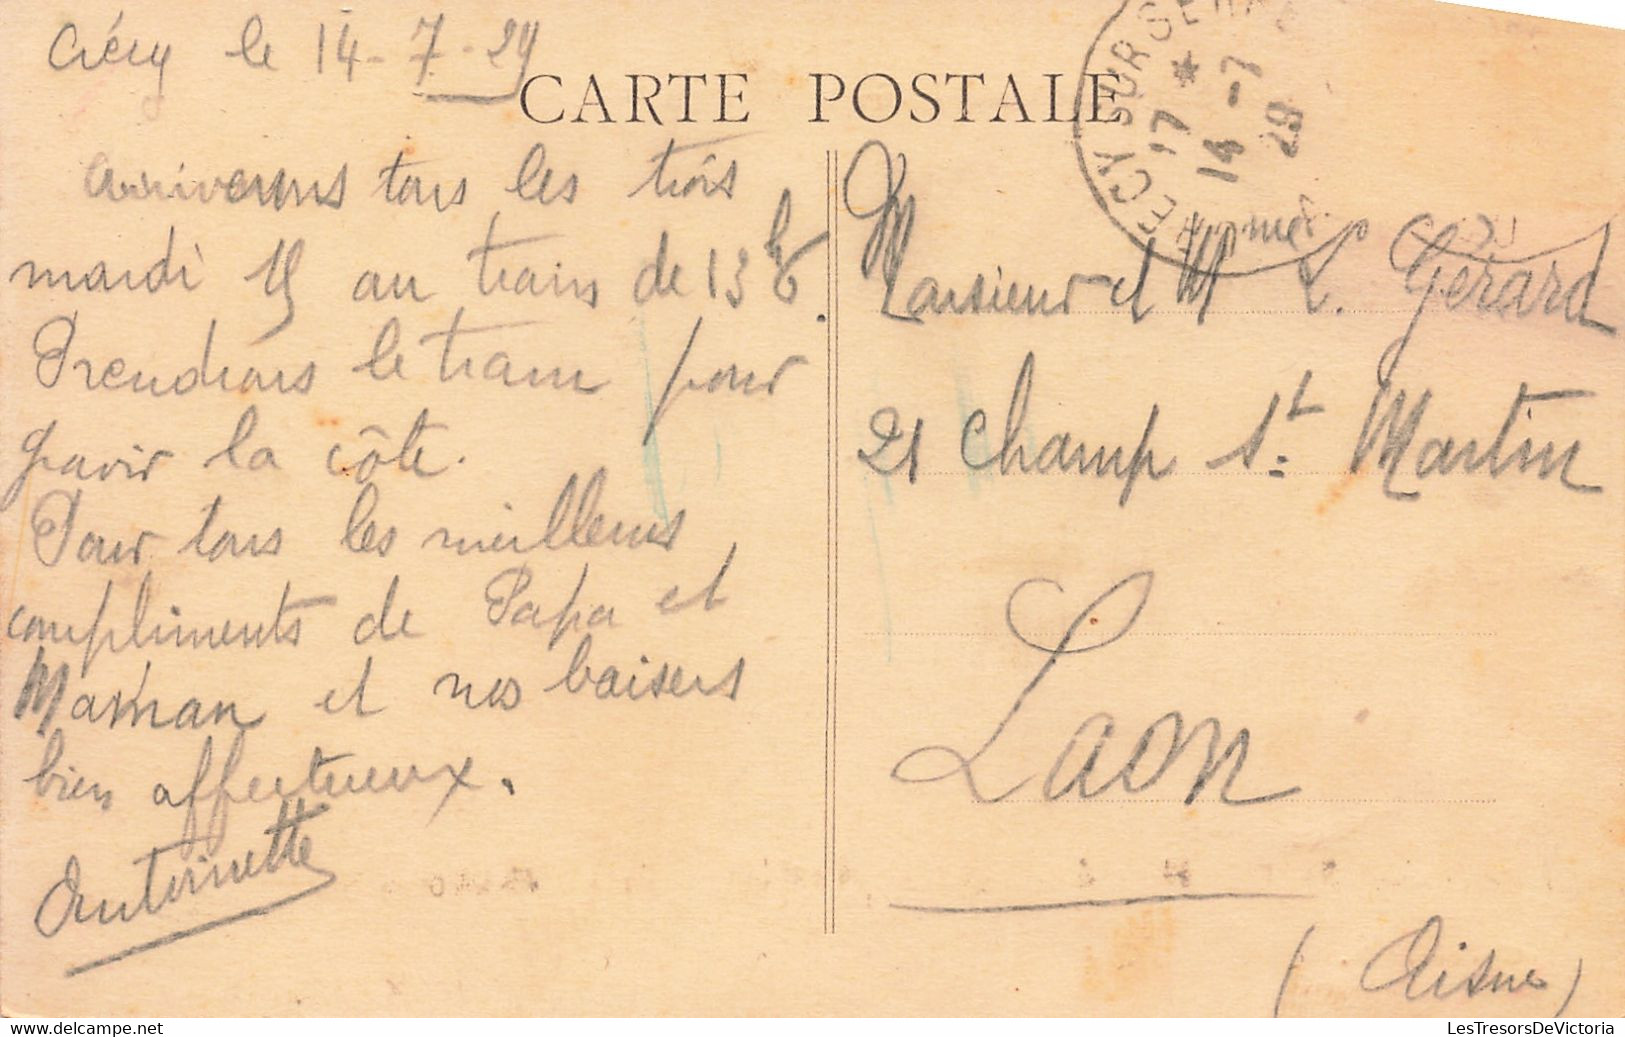 Crécy le 14-7-29
CARTE POSTALE
CRECY SUR SERRE
17 *
14 -7
29
arriverons tous les trois
mardi 15 au train de 13h6.
Prendrons le tram pour
gravir la côte.
Pour tous les meilleurs
compliments de Papa et
Maman et nos baisers
bien affectueux.
Antoinette
Monsieur et Mme L. Gérard
21 Champ St. Martin
Laon
(Aisne)
LesTresorsDeVictoria